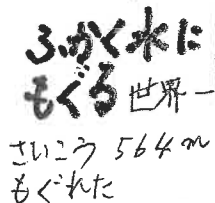 ふかく水に
もぐる 世界一
さいこう 564m
もぐれた